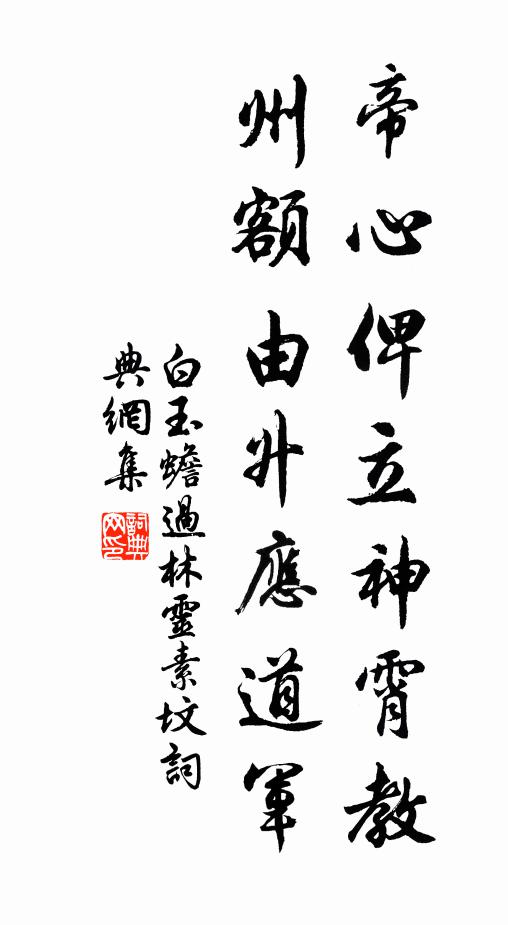 帝心俾立神霄教
州額由升應道軍
白玉蟾過林靈素坟詞
典網集
詞典
网印